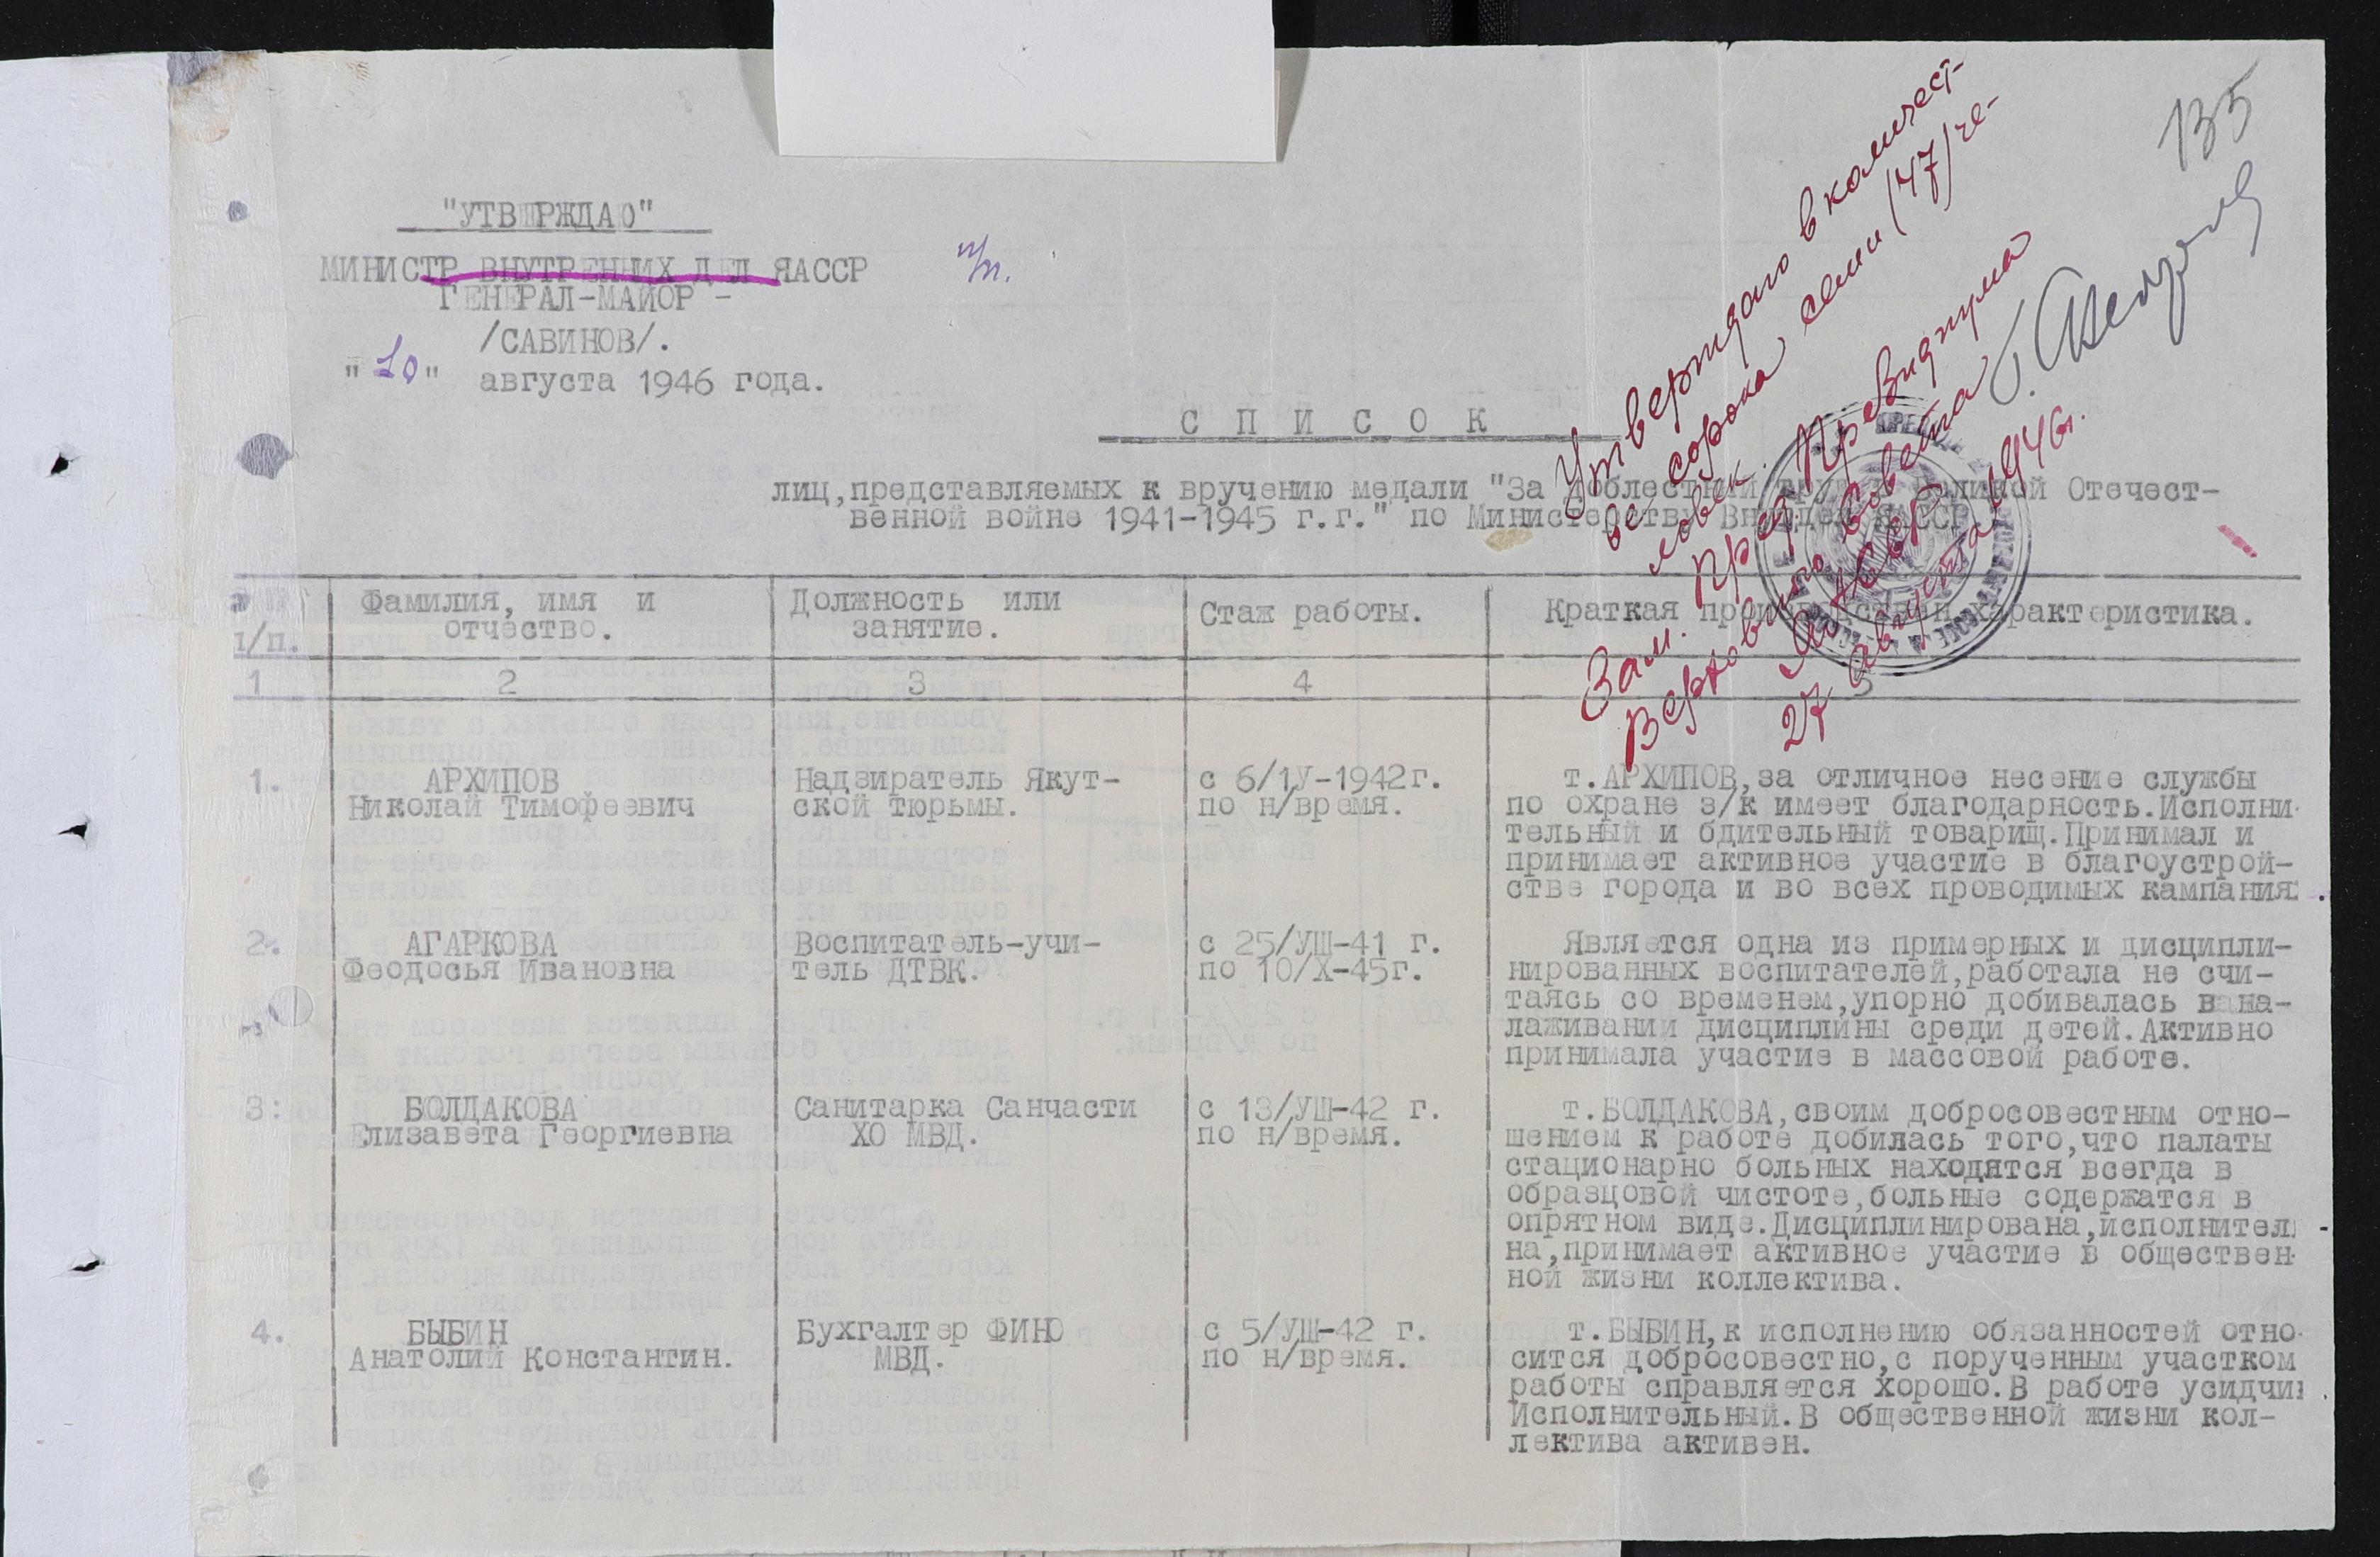 135
"УТВЕРЖДАЮ"
МИНИСТР ВНУТРЕННИХ ДЕЛ ЯАССР
ГЕНЕРАЛ-МАЙОР -
/САВИНОВ/.
"10" августа 1946 года.
Утверждаю в количест-
ве сорока семи (47) че-
ловек.
Зам. Пред. Президиума
Верховного Совета
ЯАССР
27 августа 1946г.
С П И С О К
лиц,представляемых к вручению медали "За доблестный труд в Великой Отечест-
венной войне 1941-1945 г.г." по Министерству Внутдел ЯАССР
п/п.
Фамилия, имя и
отчество.
Должность или
занятие.
Стаж работы.
Краткая производствен.характеристика.
1 2 3 4 5
1. АРХИПОВ
Николай Тимофеевич
Надзиратель Якут-
ской тюрьмы.
с 6/1У-1942г.
по н/время.
т.АРХИПОВ,за отличное несение службы
по охране з/к имеет благодарность.Исполни-
тельный и бдительный товарищ.Принимал и
принимает активное участие в благоустрой-
стве города и во всех проводимых кампаниях.
2. АГАРКОВА
Феодосья Ивановна
Воспитатель-учи-
тель ДТВК.
с 25/УШ-41 г.
по 10/Х-45г.
Является одна из примерных и дисципли-
нированных воспитателей,работала не счи-
таясь со временем,упорно добивалась в на-
лаживании дисциплины среди детей.Активно
принимала участие в массовой работе.
3. БОЛДАКОВА
Елизавета Георгиевна
Санитарка Санчасти
ХО МВД.
с 13/УШ-42 г.
по н/время.
т.БОЛДАКОВА,своим добросовестным отно-
шением к работе добилась того,что палаты
стационарно больных находятся всегда в
образцовой чистоте,больные содержатся в
опрятном виде.Дисциплинирована,исполнитель-
на,принимает активное участие в обществен-
ной жизни коллектива.
4. БЫБИН
Анатолий Константин.
Бухгалтер ФИНО
МВД.
с 5/УШ-42 г.
по н/время.
т.БЫБИН,к исполнению обязанностей отно-
сится добросовестно,с порученным участком
работы справляется хорошо.В работе усидчив.
Исполнительный.В общественной жизни кол-
лектива активен.